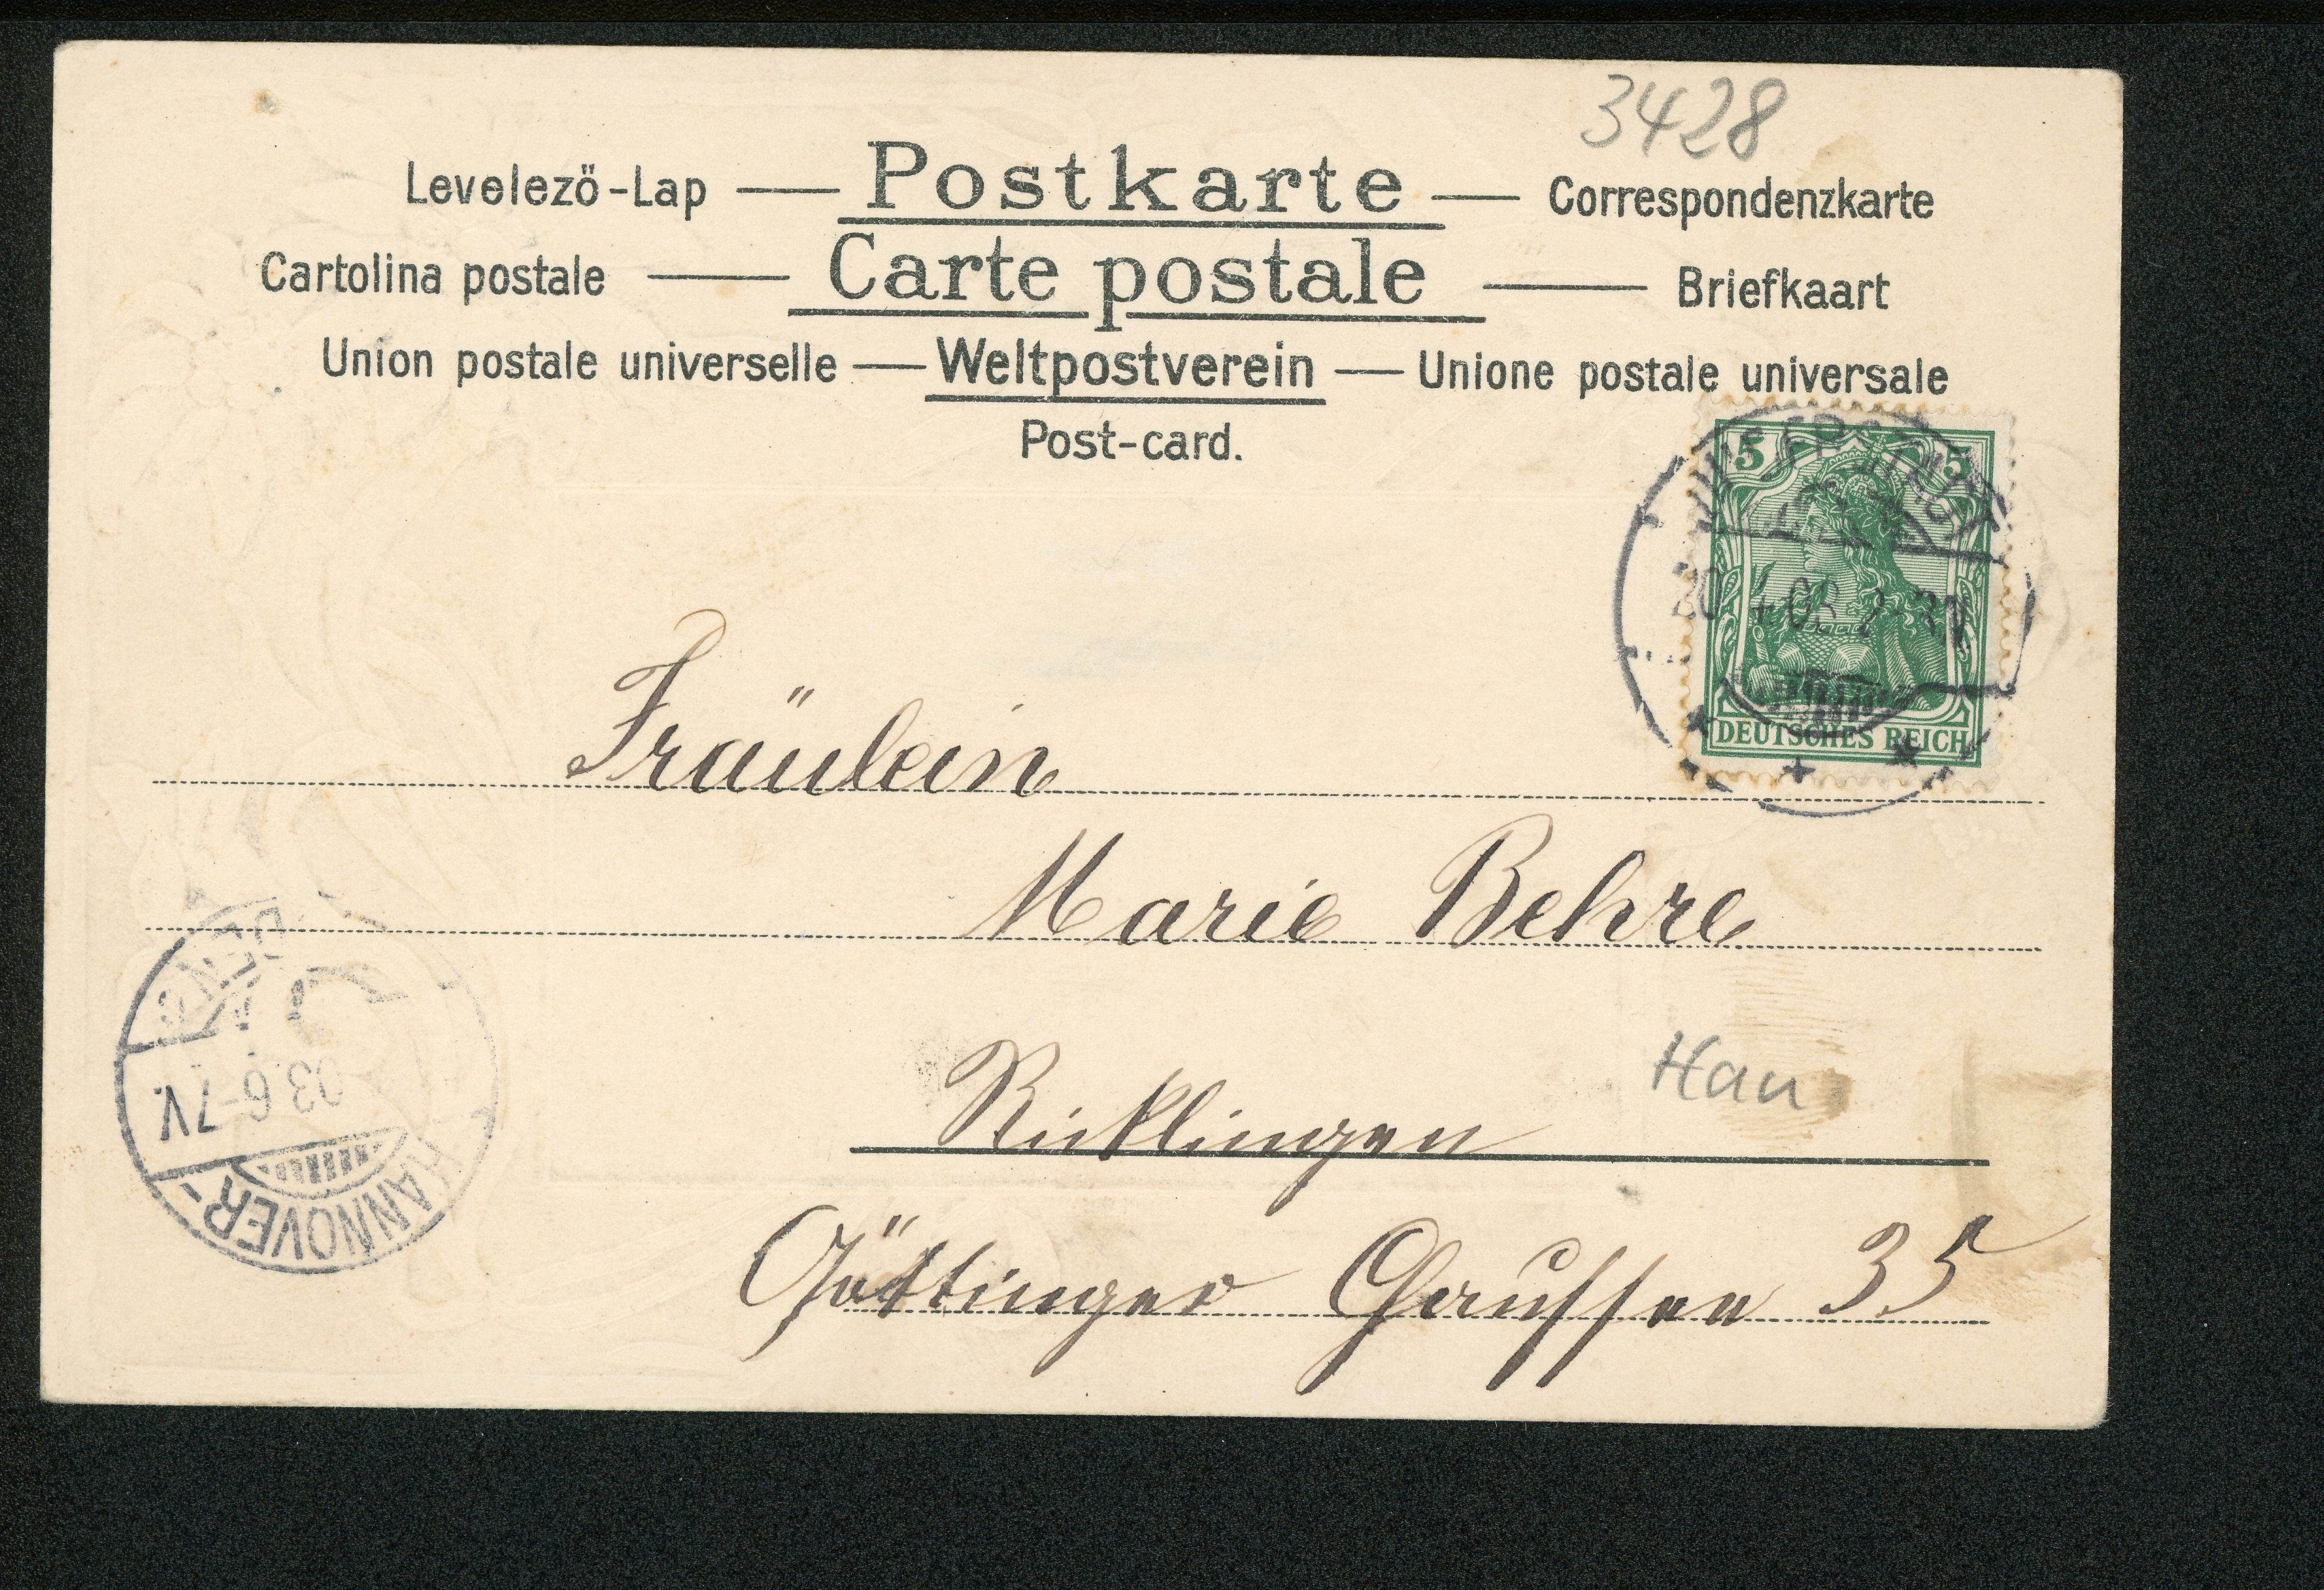 3428
Levelező-Lap — Postkarte — Correspondenzkarte
Cartolina postale — Carte postale — Briefkaart
Union postale universelle — Weltpostverein — Unione postale universale
Post-card.
5 5
DEUTSCHES REICH
Fräulein
Marie Behre
Ricklingen
Han
Göttinger Chaussee 35
03. 6-7V.
HANNOVER-